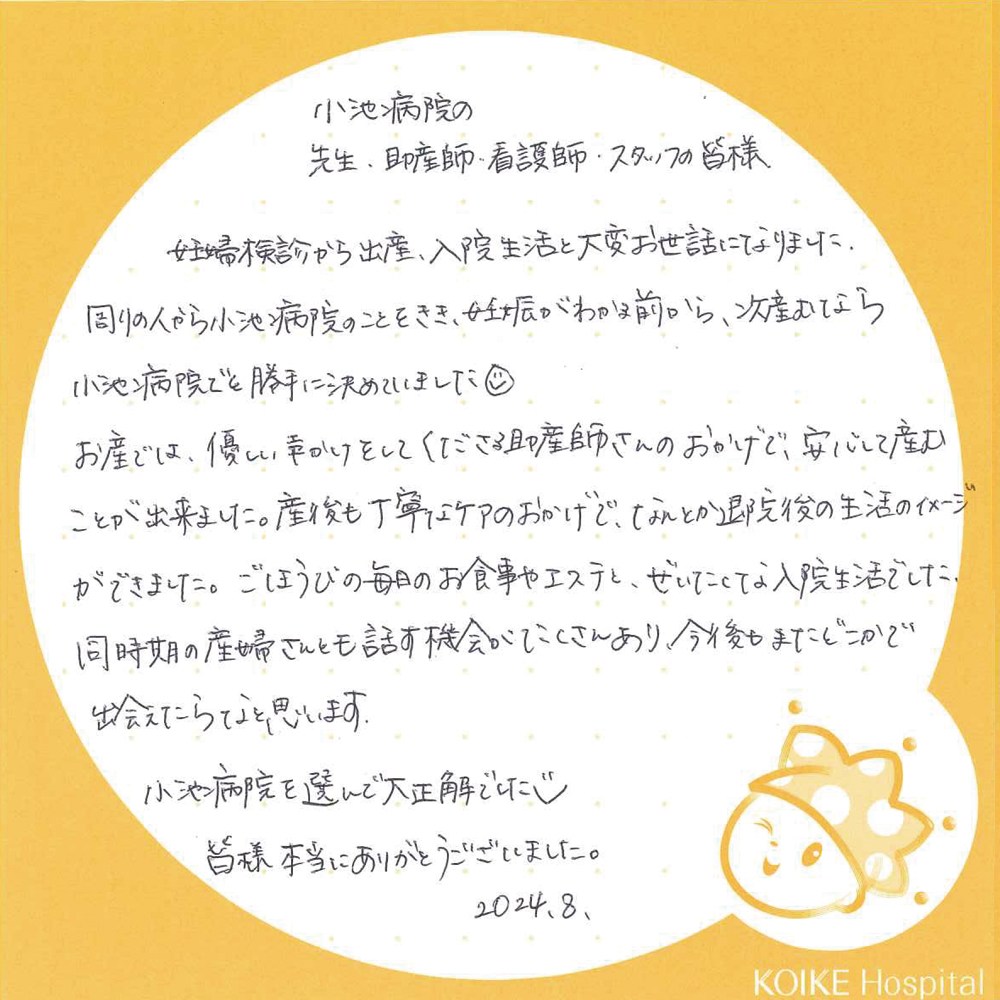 小池病院の
先生、助産師・看護師・スタッフの皆様
妊婦検診から出産、入院生活と大変お世話になりました。
周りの人から小池病院のことをきき、妊娠がわかる前から、次産むなら
小池病院でと勝手に決めていました☺
お産では、優しい声かけをしてくださる助産師さんのおかげで、安心して産む
ことが出来ました。産後も丁寧なケアのおかげで、なんとか退院後の生活のイメージ
ができました。ごほうびの毎日のお食事やエステと、ぜいたくな入院生活でした。
同時期の産婦さんとも話す機会がたくさんあり、今後もまたどこかで
出会えたらなと思います。
小池病院を選んで大正解でした
皆様本当にありがとうございました。
2024.8.
KOIKE Hospital